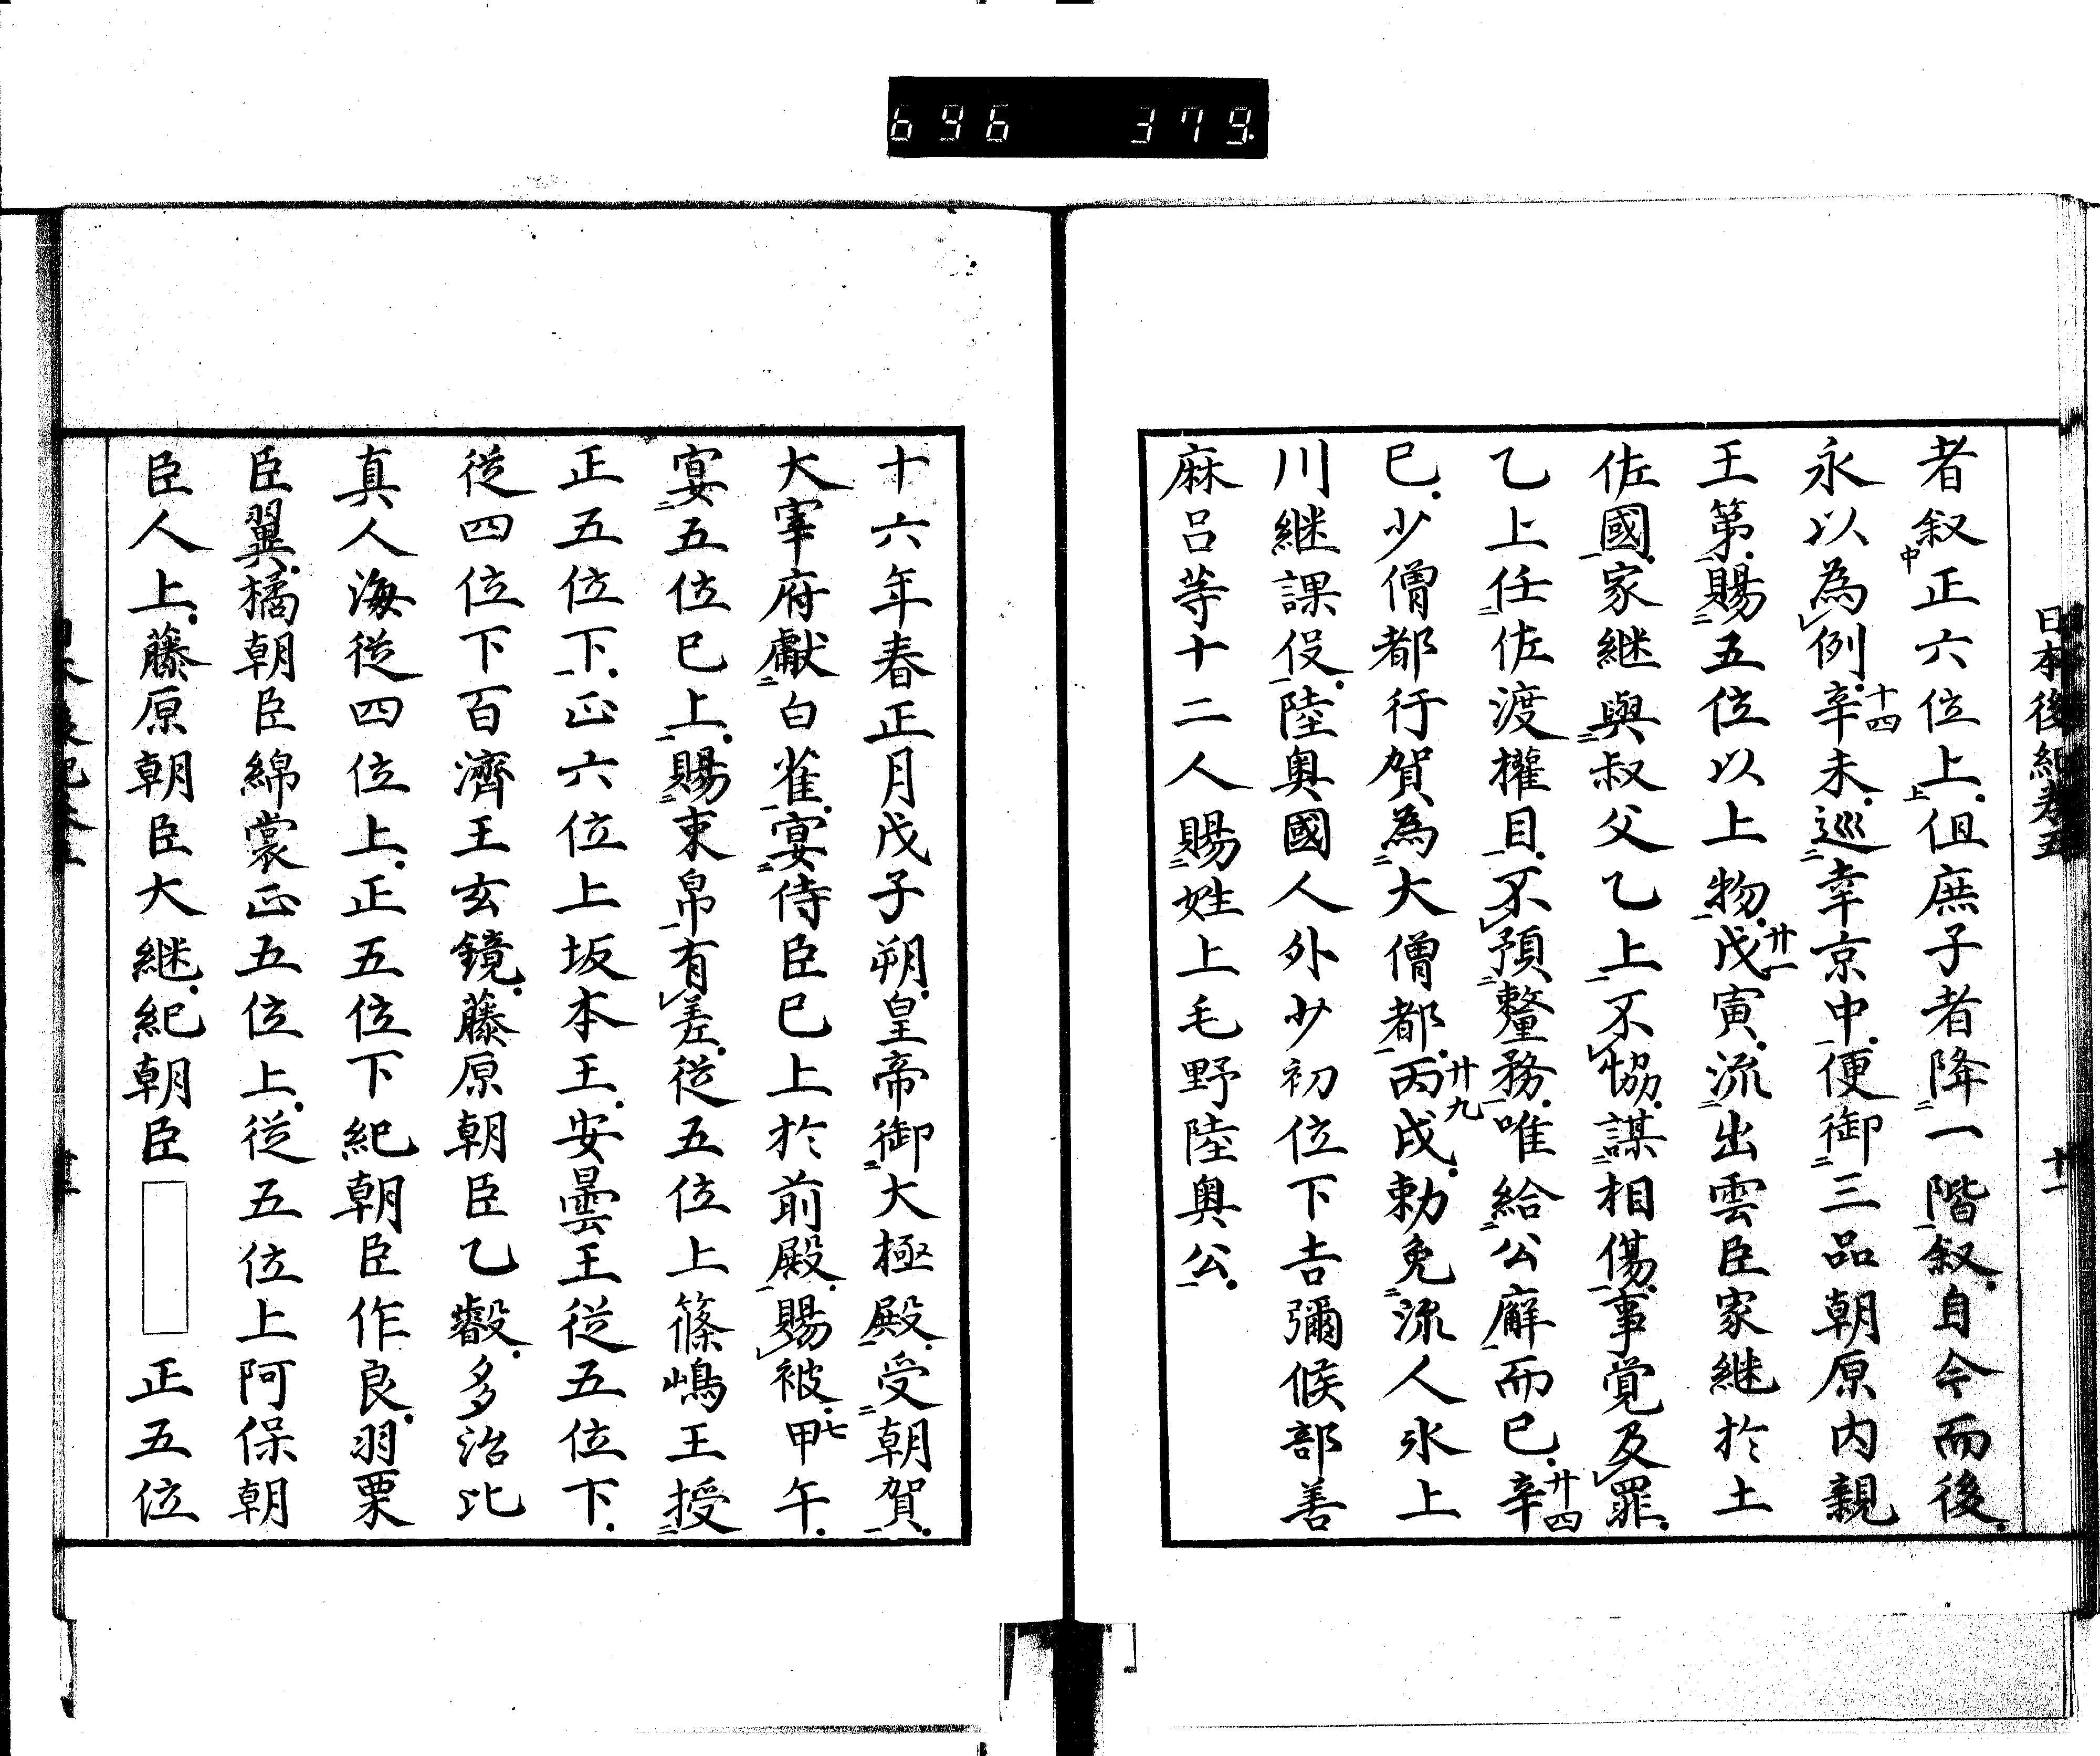 696 379
日本後紀巻五 十一
者叙正六位上但庶子者降一階叙自今而後
永以為例十四辛未巡幸京中便御三品朝原内親
王第賜五位以上物廿一戊寅流出雲臣家継於土
佐國家継與叔父乙上不協謀相傷事覚及罪
乙上任佐渡權目不預釐務唯給公廨而已廿四辛
巳少僧都行賀為大僧都廿九丙戌勅免流人氷上
川継課役陸奥國人外少初位下吉彌候部善
麻呂等十二人賜姓上毛野陸奥公
十六年春正月戊子朔皇帝御大極殿受朝賀
大宰府獻白雀宴侍臣已上於前殿賜被七甲午
宴五位已上賜束帛有差從五位上篠嶋王授
正五位下正六位上坂本王安曇王從五位下
從四位下百濟王玄鏡藤原朝臣乙叡多治比
真人海從四位上正五位下紀朝臣作良羽栗
臣翼橘朝臣綿裳正五位上從五位上阿保朝
臣人上藤原朝臣大継紀朝臣 正五位